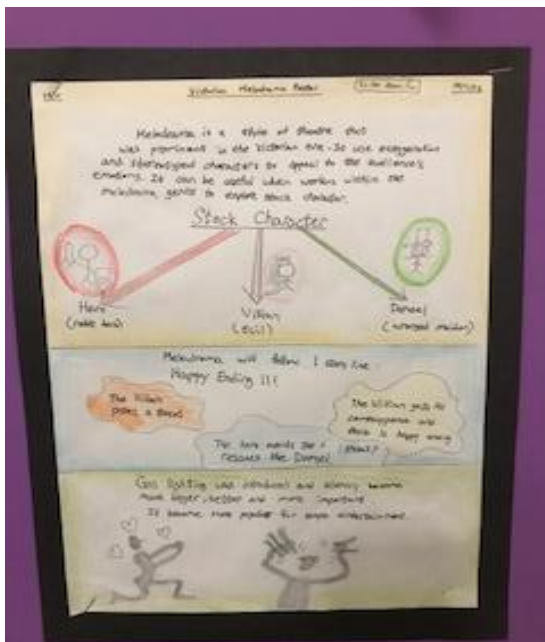 Victorian Melodrama Poster
Melodrama is a style of theatre that
was prominent in the Victorian era. It use exaggeration
and stereotyped characters to appeal to the audience's
emotions. It can be useful when working within the
melodrama genre to explore stock character.
Stock Character
Hero
(noble
Villian
(evil)
Damsel
(wronged maiden)
Melodrama will follow 1 story line
Happy Ending !!!
The Villian
poses a threat
The hero
rescues the Damsel
The Villian gets his
comeuppance and
there is happy ending
Gas lighting was introduced and scenery became
more bigger, better and more important
It became more popular for
entertainment